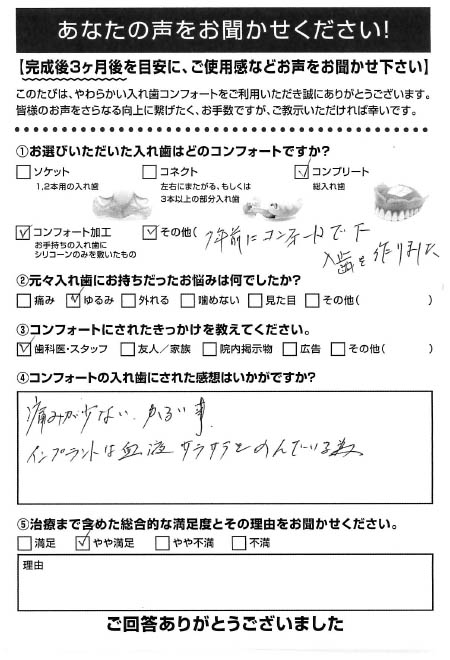 あなたの声をお聞かせください!
【完成後3ヶ月後を目安に、ご使用感などお声をお聞かせ下さい】
このたびは、やわらかい入れ歯コンフォートをご利用いただき誠にありがとうございます。
皆様のお声をさらなる向上に繋げたく、お手数ですが、ご教示いただければ幸いです。
①お選びいただいた入れ歯はどのコンフォートですか?
ソケット
1,2本用の入れ歯
コネクト
左右にまたがる、もしくは
3本以上の部分入れ歯
コンプリート
総入れ歯
コンフォート加工
お手持ちの入れ歯に
シリコーンのみを敷いたもの
その他( 7年前にコンフォートで下
入歯を作りました
②元々入れ歯にお持ちだったお悩みは何でしたか?
痛み ゆるみ 外れる 噛めない 見た目 その他( )
③コンフォートにされたきっかけを教えてください。
歯科医・スタッフ 友人/家族 院内掲示物 広告 その他( )
④コンフォートの入れ歯にされた感想はいかがですか?
痛みが少ない、かるい事
インプラントは血液サラサラをのんでいる為
⑤治療まで含めた総合的な満足度とその理由をお聞かせください。
満足 やや満足 やや不満 不満
理由
ご回答ありがとうございました